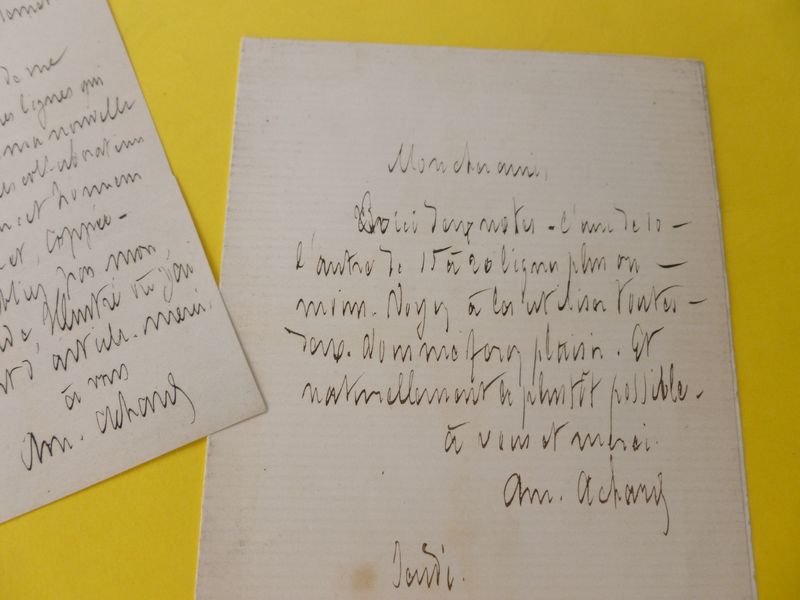 de me
lignes qui
ma nouvelle
collaborateurs
et hommes
et, Coppée -
pas mon
illustré où j'ai
d'article. merci.
à vous
Am. Achard
Mon cher ami,
Voici deux notes - l'une de 10 -
l'autre de 15 à 20 lignes plus ou -
moins. Voyez à les utiliser toutes -
deux. Vous me ferez plaisir. Et
naturellement le plustôt possible -
à vous et merci.
Am. Achard
Jeudi.